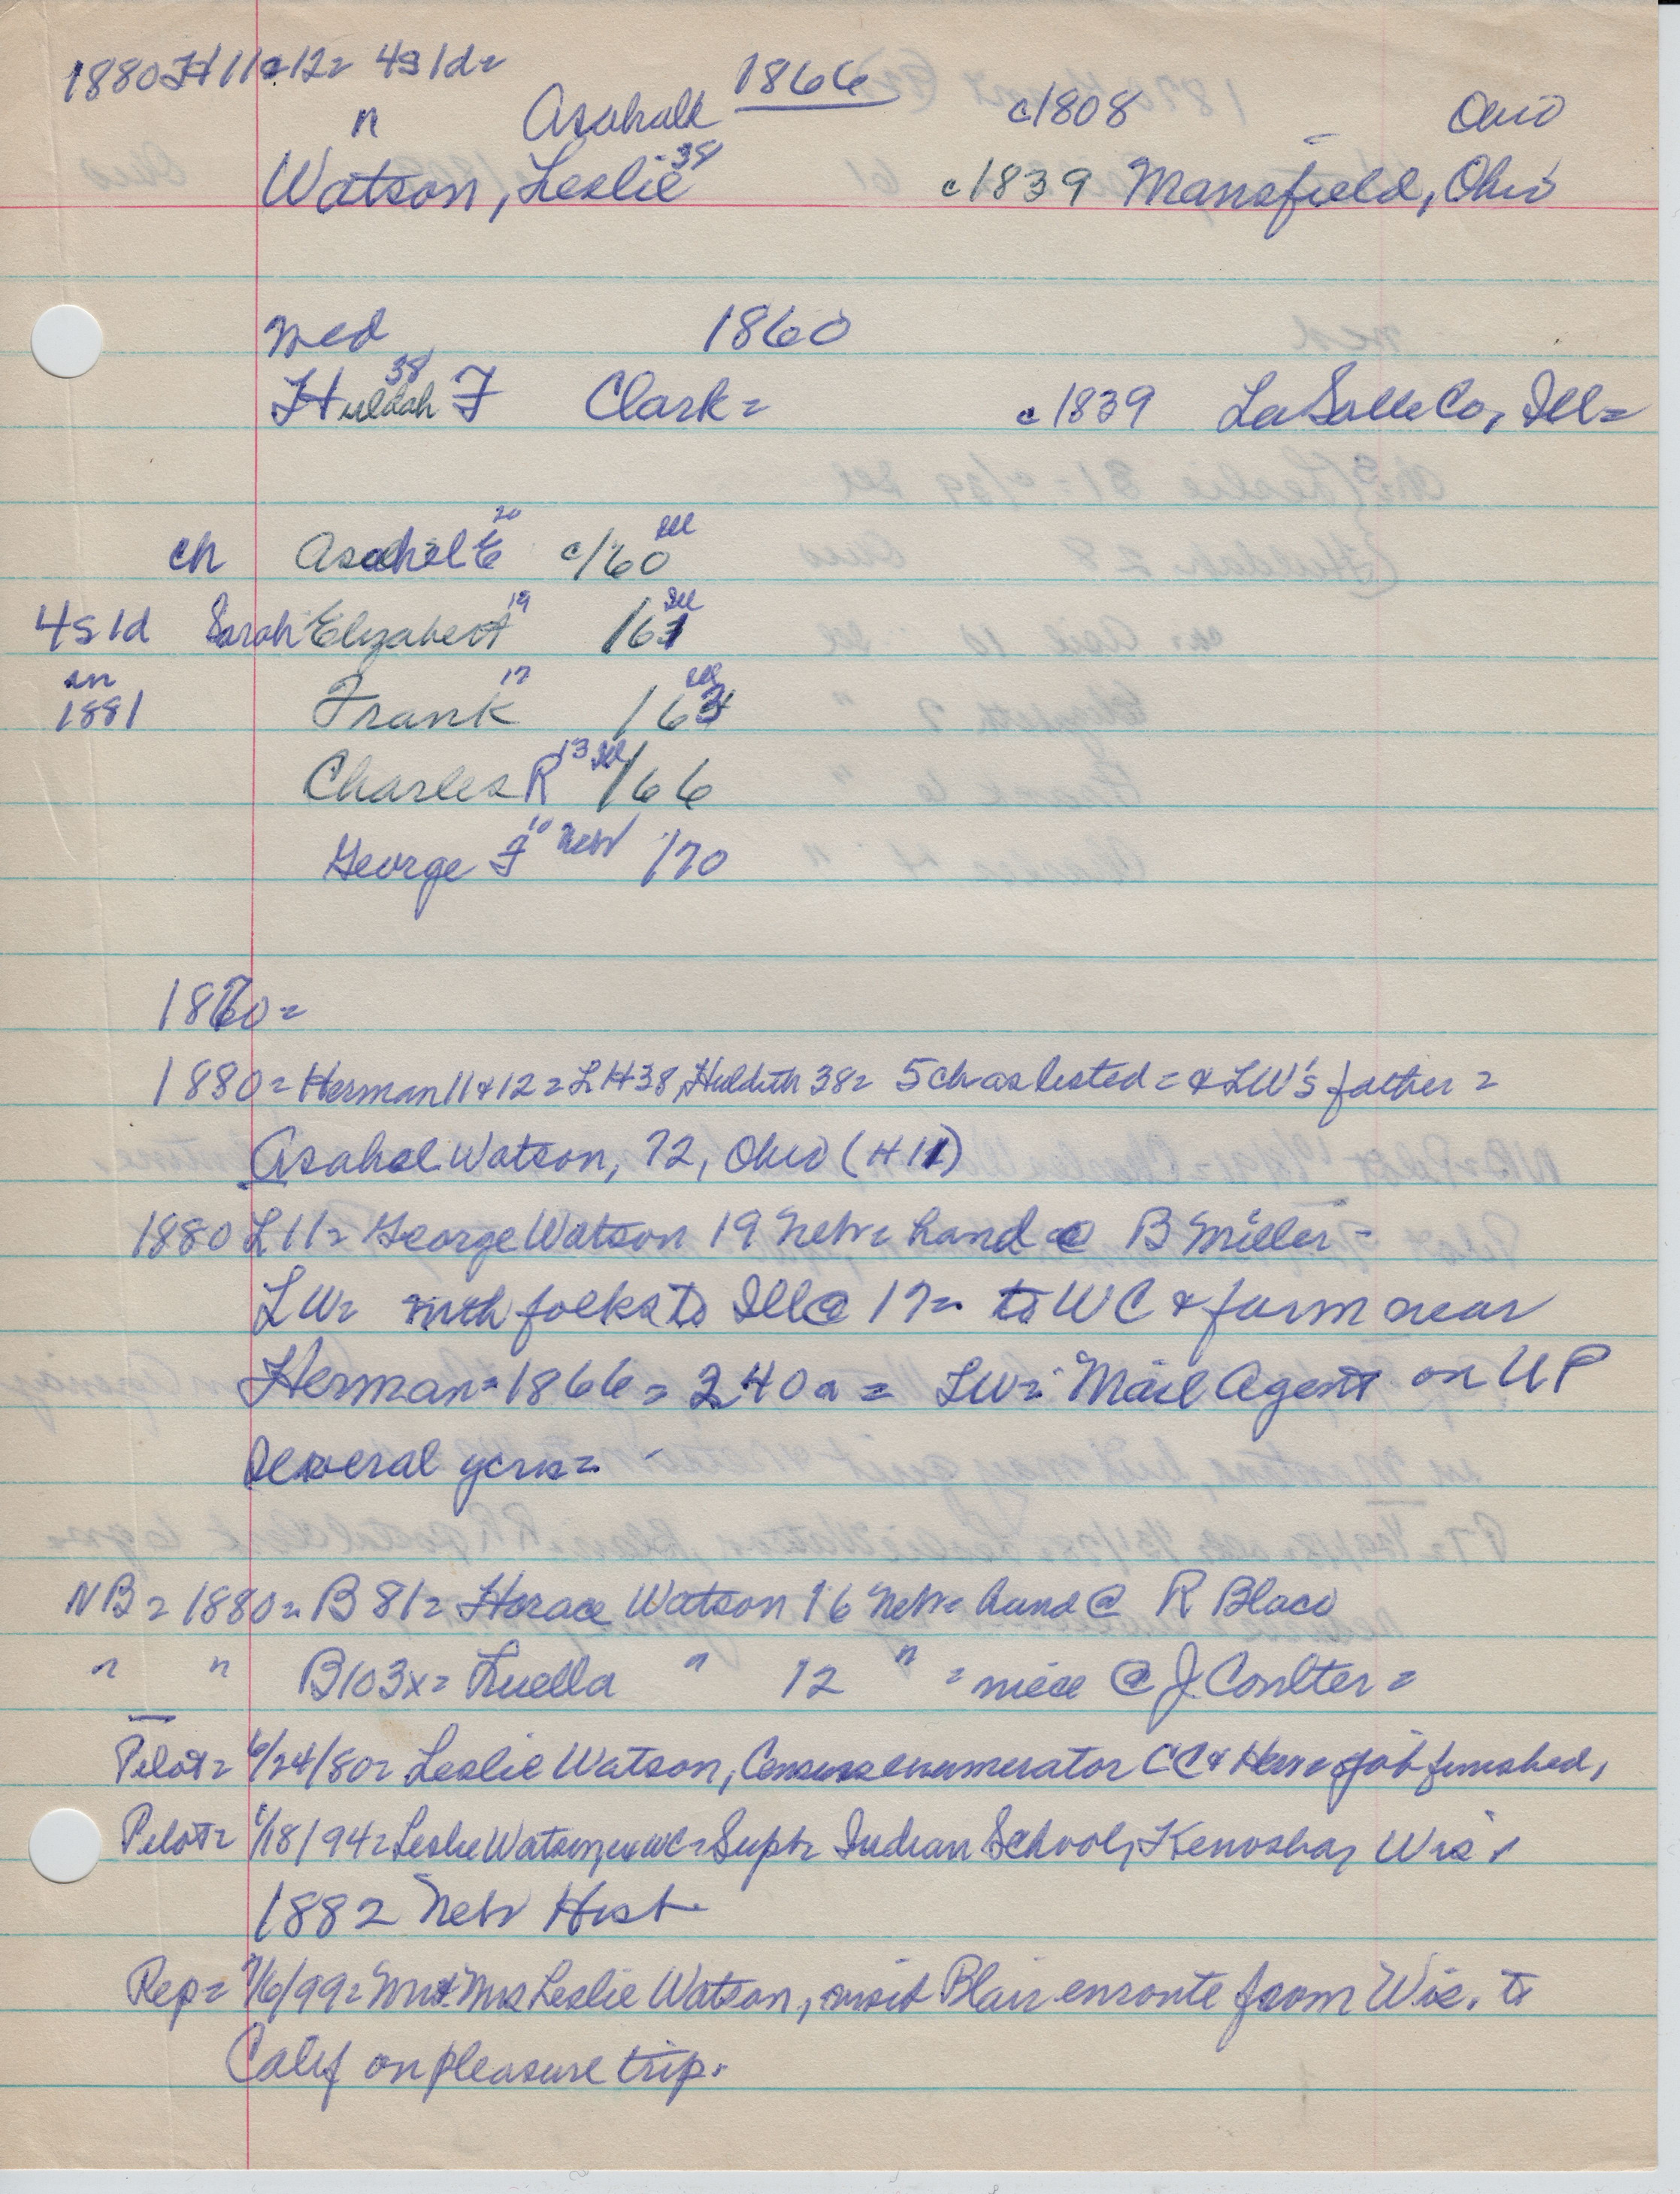 1880 H 11 & 12= 4s 1d=
1866
" Asahall c1808 - Ohio
Watson, Leslie 38 c1839 Mansfield, Ohio
med 1860
Huldah 38 F Clark= c1839 LaSalle Co, Ill=
ch Asahel E 20 c/60 Ill
4s 1d Sarah Elizabeth 19 /61 Ill
in Frank 17 /63 Ill
1881
Charles R 13 Ill /66
George F 10 Neb /70
1870=
1880= Herman 11 & 12= L H 38, Huldith 38= 5 ch as listed= & LW's father=
Asahel Watson, 72, Ohio (H 11)
1880 L 11= George Watson 19 Neb= hand @ B Miller-
LW= with folks to Ill @ 17= to WC & farm near
Herman= 1866= 240a= LW= Mail Agent on UP
several yers= -
NB= 1880= B 81= Horace Watson 16 Neb= hand @ R Blaco
" " B103x= Luella " 12 " = niece @ J. Coulter=
Pilot= 6/24/80= Leslie Watson, Census enumerator CC & Her= job finished,
Pilot= 1/18/94= Leslie Watson, ex WC= Supt= Indian School, Kenosha, Wis.
1882 Neb Hist
Rep= 7/6/99= Mr & Mrs Leslie Watson, visit Blair enroute from Wis. to
Calif on pleasure trip.